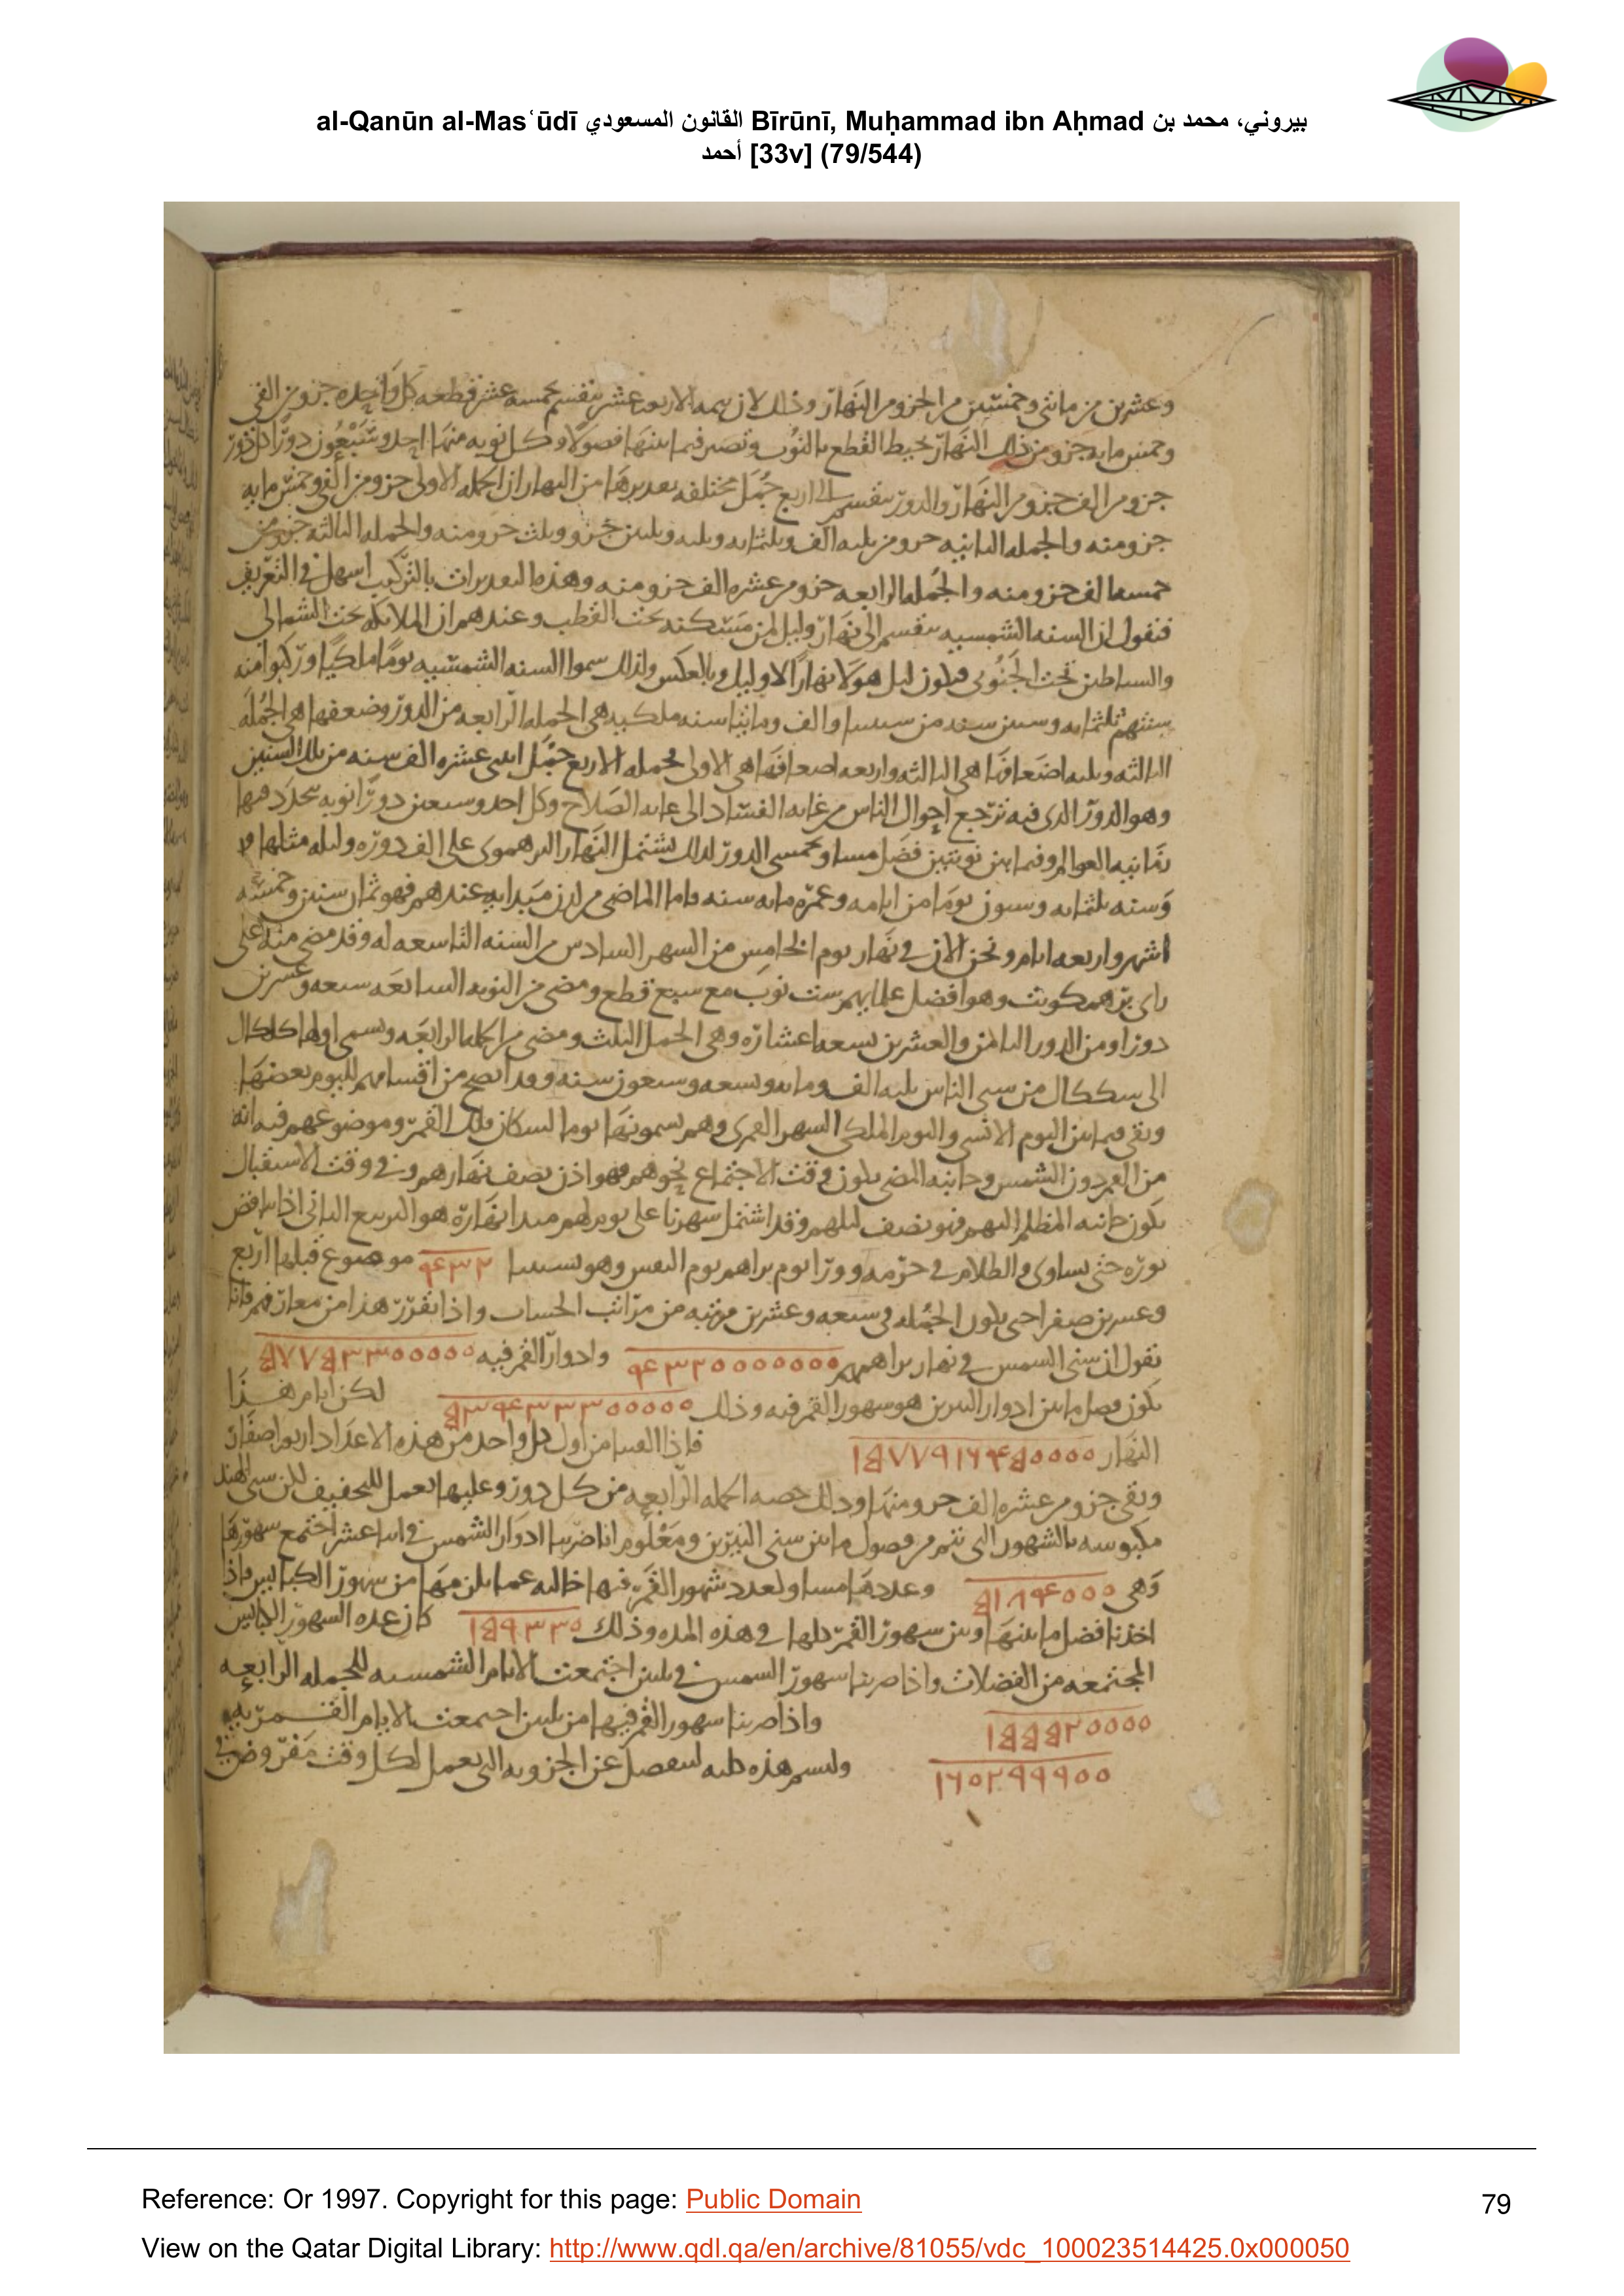 al-Qanūn al-Masʿūdī القانون المسعودي Bīrūnī, Muḥammad ibn Aḥmad بيروني، محمد بن
أحمد [33v] (79/544)
وعشرين من مائتى وخمسين من الجزو من النهار وذلك لان تتمه الاربعه عشر ينقسم بخمسه عشر قطعه كل واحده جزو من الفى
وخمس مايه جزو من ذلك النهار يحيط القطع بالنوب وتصير فيما بينها فصولا وكل نوبه منها احد وسبعون دورا كل دور
جزو من الف جزو من النهار والدور ينقسم الى اربع جمل مختلفه تقديرها من النهار ان الجمله الاولى جزو من الفى وخمس مايه
جزو منه والجمله الثانيه جزو من ثلثه الف وثلثمايه وثلثه وثلثين جزو وثلث جزو منه والجمله الثالثه جزو من
خمسه الف جزو منه والجمله الرابعه جزو من عشره الف جزو منه وهذه التقديرات بالتركيب اسهل فى التعريف
فنقول ان السنه الشمسيه ينقسم الى نهار وليل لمن مسكنه تحت القطب وعندهم ان الملايكه تحت الشمالى
والشياطين تحت الجنوبى فيكون ليل هولا نهارا لاوليك وبالعكس ولذلك سموا السنه الشمسيه يوما ملكيا وركبوا منه
سنتهم ثلثمايه وستين سنه من سنينا والف ومايتا سنه ملكيه هى الجمله الرابعه من الدور وضعفها هى الجمله
الثالثه وثلثه اضعافها هى الثانيه واربعه اضعافها هى الاولى فجمله الاربع جمل اثنى عشره الف سنه من تلك السنين
وهو الدور الذى فيه ترجع احوال الناس من غايه الفساد الى غايه الصلاح وكل احد وسبعين دورا نوبه يتجدد فيها
وسنه ثلثمايه وستون يوما من ايامه وعمره مايه سنه واما الماضى من لدن مبدايه عندهم فهو ثمان سنين وخمسه
اشهر واربعه ايام ونحن الان فى نهار يوم الخامس من الشهر السادس من السنه التاسعه له وقد مضى منه على
راى برهمكوبت وهو افضل علمايهم ست نوب مع سبع قطع ومضى من النوبه السابعه سبعه وعشرين
دورا ومن الدور الثامن والعشرين تسعه اعشاره وهى الجمل الثلث ومضى من الجمله الرابعه ويسمى اولها كلكال
الى سككال من سنى الناس ثلثه الف ومايه وتسعه وسبعون سنه وقد اتضح من اقسامهم لليوم بعضها
وبقى فيما بين اليوم الانسى واليوم الملكى الشهر القمرى وهم يسمونها يوما لسكان فلك القمر وموضوعهم فيه انه
من القمر دون الشمس وجانبه المضى يكون وقت الاجتماع نحوهم فهو اذن نصف نهارهم وفى وقت الاستقبال
يكون جانبه المظلم اليهم فهو نصف ليلهم وقد اشتمل شهرنا على يوم لهم مبدا نهاره هو التربيع الثانى اذا تناقص
نوره حتى يساوى الظلام فى جرمه وورا يوم براهم يوم النفس وهو بسنينا ۴۳۲ موضوع قبلها اربع
وعشرين صفرا حتى يكون الجمله فى سبعه وعشرين مرتبه من مراتب الحساب واذا تقرر هذا من معارفهم فانا
نقول ان سنى الشمس فى نهار براهم ۴۳۲۰۰۰۰۰۰۰ وادوار القمر فيه ۵۷۷۵۳۳۰۰۰۰۰
يكون فصل ما بين ادوار النيرين هو شهور القمر فيه وذلك ۵۳۴۳۳۳۰۰۰۰۰ لكن ايام هذا
النهار ۱۵۷۷۹۱۶۴۵۰۰۰۰ فاذا القينا من اول كل واحد من هذه الاعداد اربعه اصفار
وبقى جزو من عشره الف جزو منها وذلك حصه الجمله الرابعه من كل دور وعليها يعمل للتخفيف لكن سنى الهند
مكبوسه بالشهور التى تتم من فصول ما بين سنى النيرين ومعلوم انا ضربنا ادوار الشمس فى اثنا عشر اجتمع شهورها
وهى ۵۱۸۴۰۰۰ وعددها مساو لعدد شهور القمر فيها خاليه عما يكون منها من شهور الكبايس فاذا
اخذنا فضل ما بينها وبين شهور القمر كلها فى هذه المده وذلك ۱۵۹۳۳۰ كان عده الشهور الكبايس
المجتمعه من الفضلات واذا ضربنا شهور الشمس فى ثلثين اجتمعت الايام الشمسيه للجمله الرابعه
۱۵۵۵۲۰۰۰۰ واذا ضربنا شهور القمر فيها من ثلثين اجتمعت الايام القمريه
۱۶۰۲۹۹۹۰۰ ولنسم هذه كليه لتنفصل عن الجزويه التى يعمل لكل وقت مفروض فى
Reference: Or 1997. Copyright for this page: Public Domain
79
View on the Qatar Digital Library: http://www.qdl.qa/en/archive/81055/vdc_100023514425.0x000050